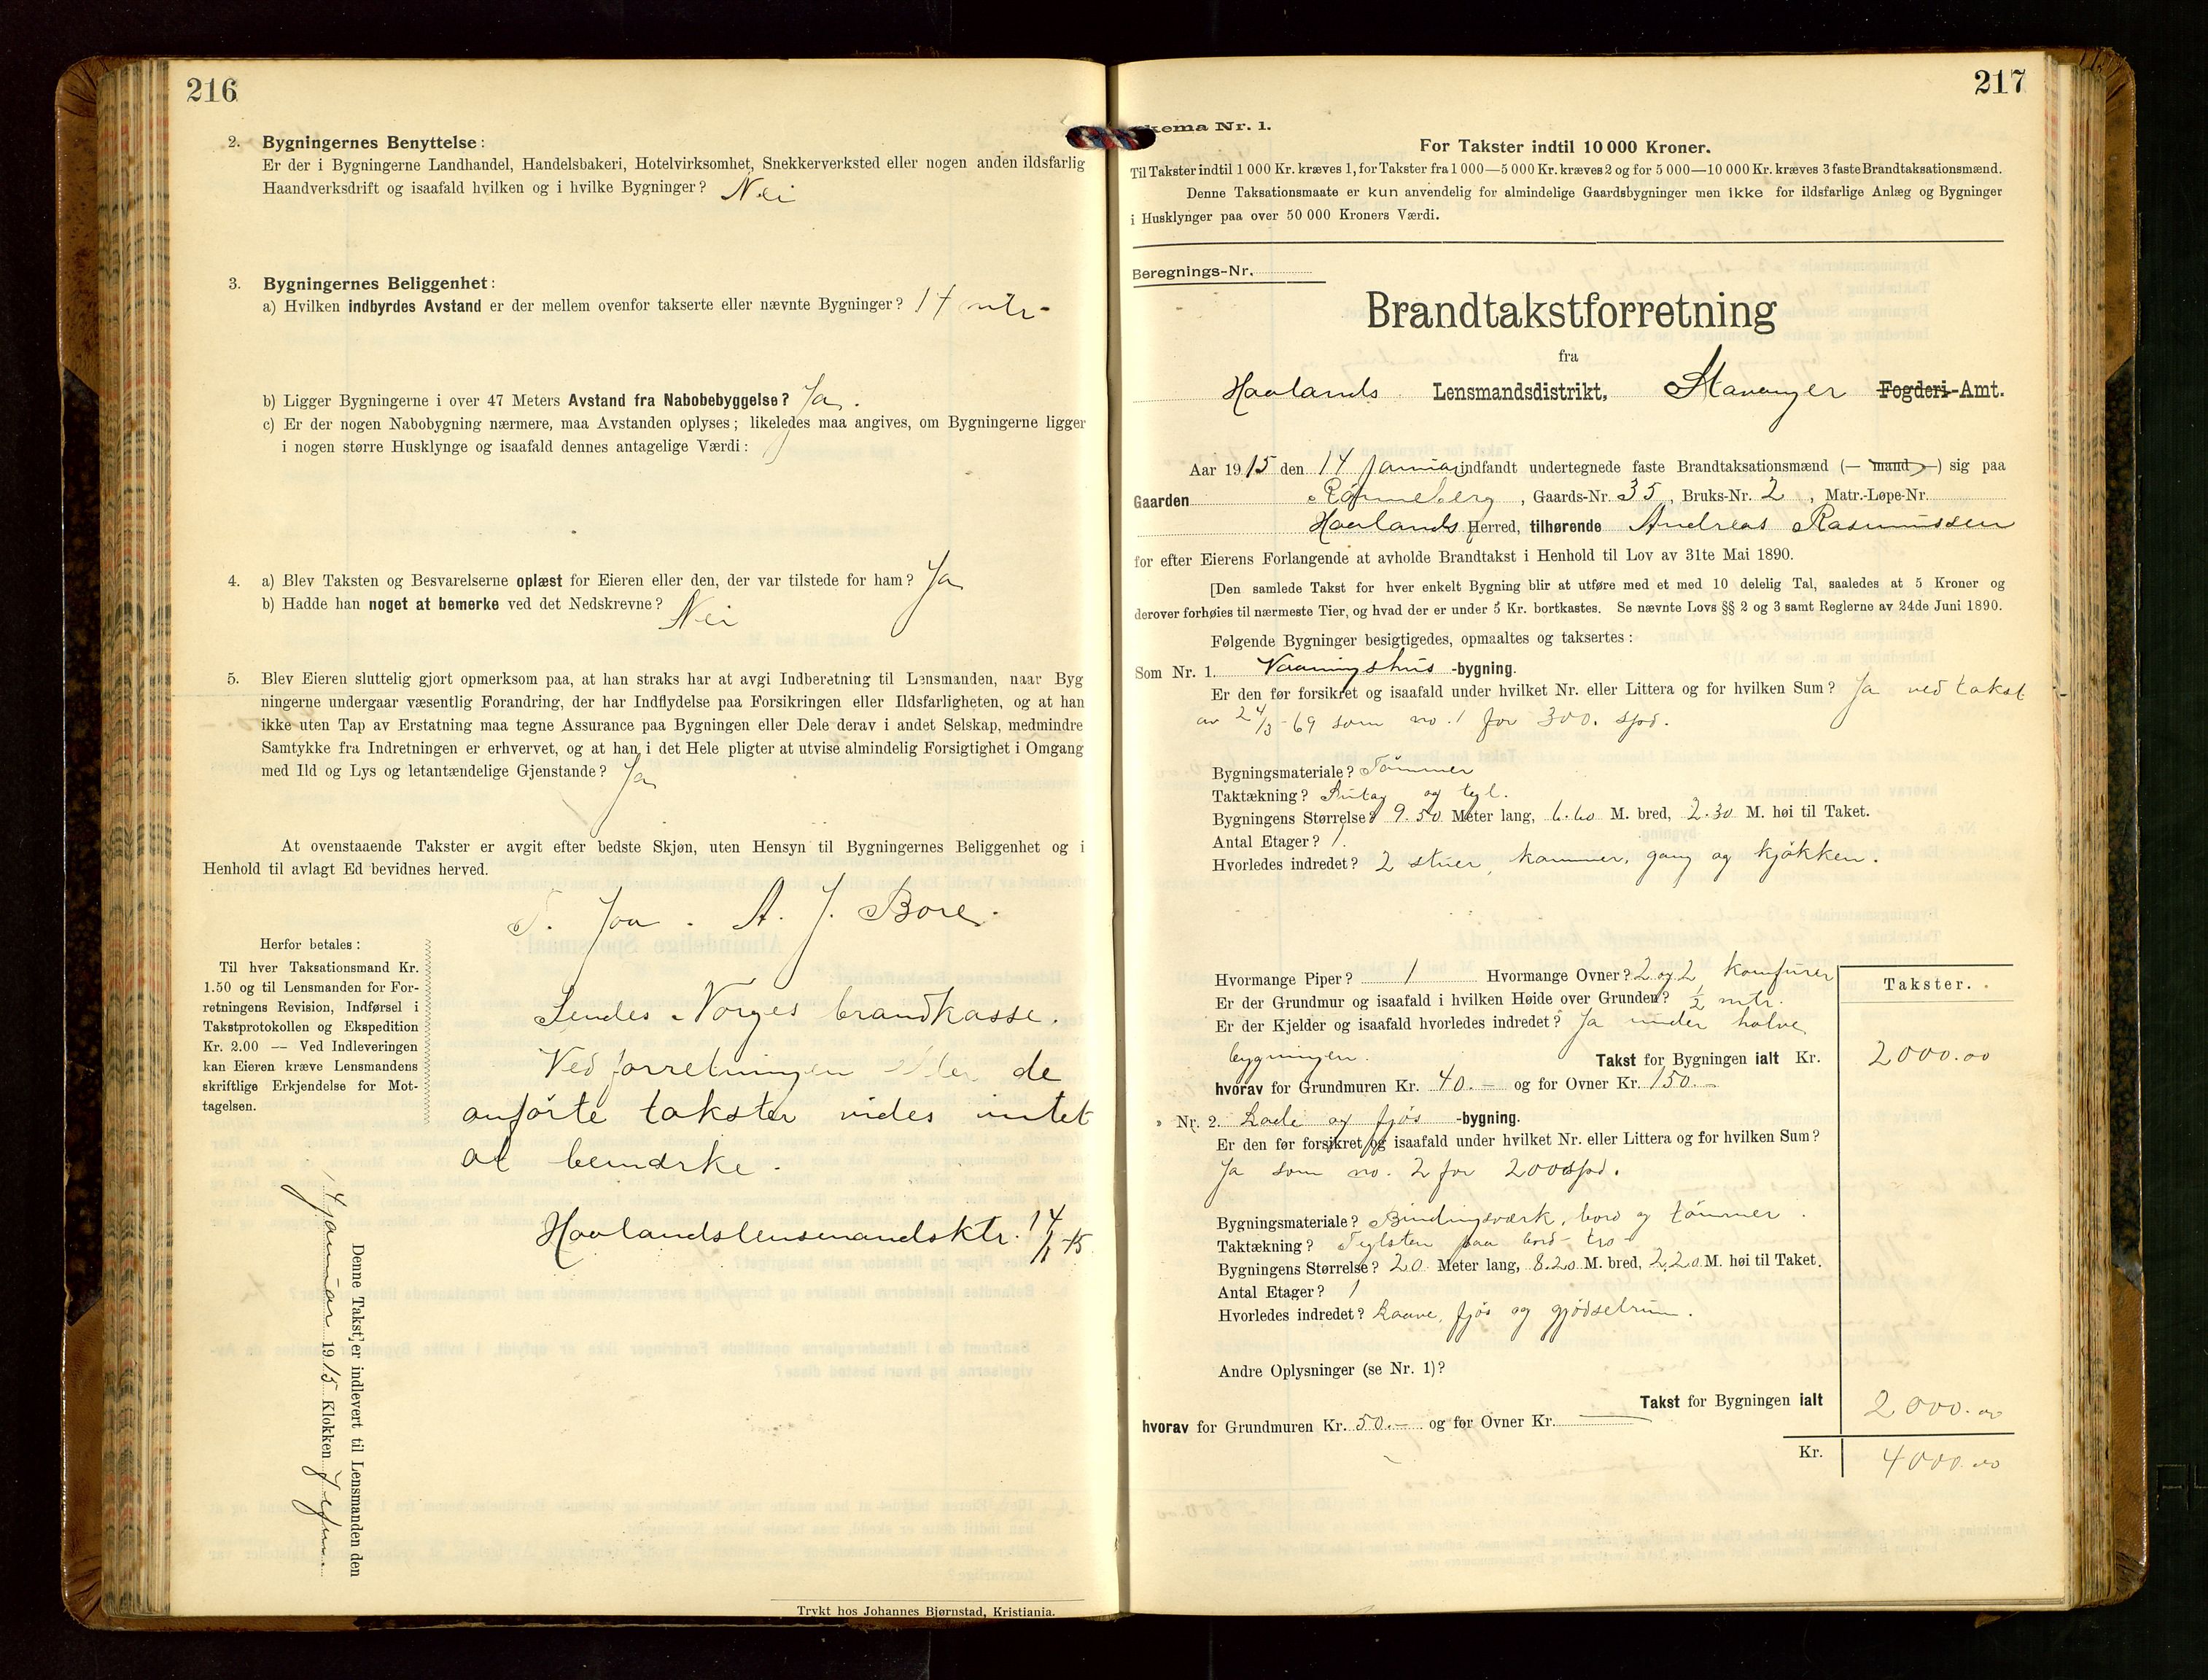 216
2. Bygningernes Benyttelse:
Er der i Bygningerne Landhandel, Handelsbakeri, Hotelvirksomhet, Snekkerverksted eller nogen anden ildsfarlig
Haandverksdrift og isaafald hvilken og i hvilke Bygninger? Nei
3. Bygningernes Beliggenhet:
a) Hvilken indbyrdes Avstand er der mellem ovenfor takserte eller nævnte Bygninger? 14 mtr.
b) Ligger Bygningerne i over 47 Meters Avstand fra Nabobebyggelse? Ja.
c) Er der nogen Nabobygning nærmere, maa Avstanden oplyses; likeledes maa angives, om Bygningerne ligger
i nogen større Husklynge og isaafald dennes antagelige Værdi:
4. a) Blev Taksten og Besvarelserne oplæst for Eieren eller den, der var tilstede for ham? Ja
b) Hadde han noget at bemerke ved det Nedskrevne? Nei
5. Blev Eieren sluttelig gjort opmerksom paa, at han straks har at avgi Indberetning til Lensmanden, naar Byg
ningerne undergaar væsentlig Forandring, der har Indflydelse paa Forsikringen eller Ildsfarligheten, og at han
ikke uten Tap av Erstatning maa tegne Assurance paa Bygningen eller Dele derav i andet Selskap, medmindre
Samtykke fra Indretningen er erhvervet, og at han i det Hele pligter at utvise almindelig Forsigtighet i Omgang
med Ild og Lys og letantændelige Gjenstande? Ja
At ovenstaaende Takster er avgit efter bedste Skjøn, uten Hensyn til Bygningernes Beliggenhet og i
Henhold til avlagt Ed bevidnes herved.
T. Joa. A. J. Bore.
Herfor betales:
Til hver Taksationsmand Kr.
1.50 og til Lensmanden for For-
retningens Revision, Indførsel i
Takstprotokollen og Ekspedition
Kr. 2.00 — Ved Indleveringen
kan Eieren kræve Lensmandens
skriftlige Erkjendelse for Mot-
tagelsen.
Sendes Norges brandkasse.
Ved forretningen eller de
anførte takster vides intet
at bemærke.
Haalandslensmandsktr. 14/1-15
Denne Takst er indlevert til Lensmanden den
14 januar 1915 Klokken
Trykt hos Johannes Bjørnstad, Kristiania.
217
kema Nr. 1.
For Takster indtil 10 000 Kroner.
Til Takster indtil 1 000 Kr. kræves 1, for Takster fra 1 000—5 000 Kr. kræves 2 og for 5 000—10 000 Kr. kræves 3 faste Brandtaksationsmænd.
Denne Taksationsmaate er kun anvendelig for almindelige Gaardsbygninger men ikke for ildsfarlige Anlæg og Bygninger
i Husklynger paa over 50 000 Kroners Værdi.
Beregnings-Nr.
Brandtakstforretning
fra
Haalands Lensmandsdistrikt, Stavanger Fogderi-Amt.
Aar 1915 den 14 Januar indfandt undertegnede faste Brandtaksationsmænd (— mand —) sig paa
Gaarden Rønneberg, Gaards-Nr. 35, Bruks-Nr. 2, Matr.-Løpe-Nr.
Haalands Herred, tilhørende Andreas Rasmussen
for efter Eierens Forlangende at avholde Brandtakst i Henhold til Lov av 31te Mai 1890.
[Den samlede Takst for hver enkelt Bygning blir at utføre med et med 10 delelig Tal, saaledes at 5 Kroner og
derover forhøies til nærmeste Tier, og hvad der er under 5 Kr. bortkastes. Se nævnte Lovs §§ 2 og 3 samt Reglerne av 24de Juni 1890.
Følgende Bygninger besigtigedes, opmaaltes og taksertes:
Som Nr. 1. Vaaningshus -bygning.
Er den før forsikret og isaafald under hvilket Nr. eller Littera og for hvilken Sum? Ja ved takst
av 24/3-69 som no. 1 for 300. spd.
Bygningsmateriale? Tømmer
Taktækning? og tegl.
Bygningens Størrelse? 9.50 Meter lang, 6.60 M. bred, 2.30 M. høi til Taket.
Antal Etager? 1.
Hvorledes indredet? 2 stuer, kammer, gang og kjøkken.
Hvormange Piper? 1 Hvormange Ovner? 2 og 2 komfurer
Er der Grundmur og isaafald i hvilken Høide over Grunden? ½ mtr.
Er der Kjelder og isaafald hvorledes indredet? Ja under halve
bygningen.
Takster.
Takst for Bygningen ialt Kr. 2000.00
hvorav for Grundmuren Kr. 40.— og for Ovner Kr. 150.—
» Nr. 2. Lade og fjøs -bygning.
Er den før forsikret og isaafald under hvilket Nr. eller Littera og for hvilken Sum?
Ja som no. 2 for 200 spd.
Bygningsmateriale? Bindingsværk, bord og tømmer.
Taktækning? Teglsten paa bord-tro
Bygningens Størrelse? 20 Meter lang, 8.20 M. bred, 2.20 M. høi til Taket.
Antal Etager? 1
Hvorledes indredet? Laave, fjøs og gjødselrum.
Andre Oplysninger (se Nr. 1)?
Takst for Bygningen ialt 2000.00
hvorav for Grundmuren Kr. 50.— og for Ovner Kr. —
Kr. 4000.00